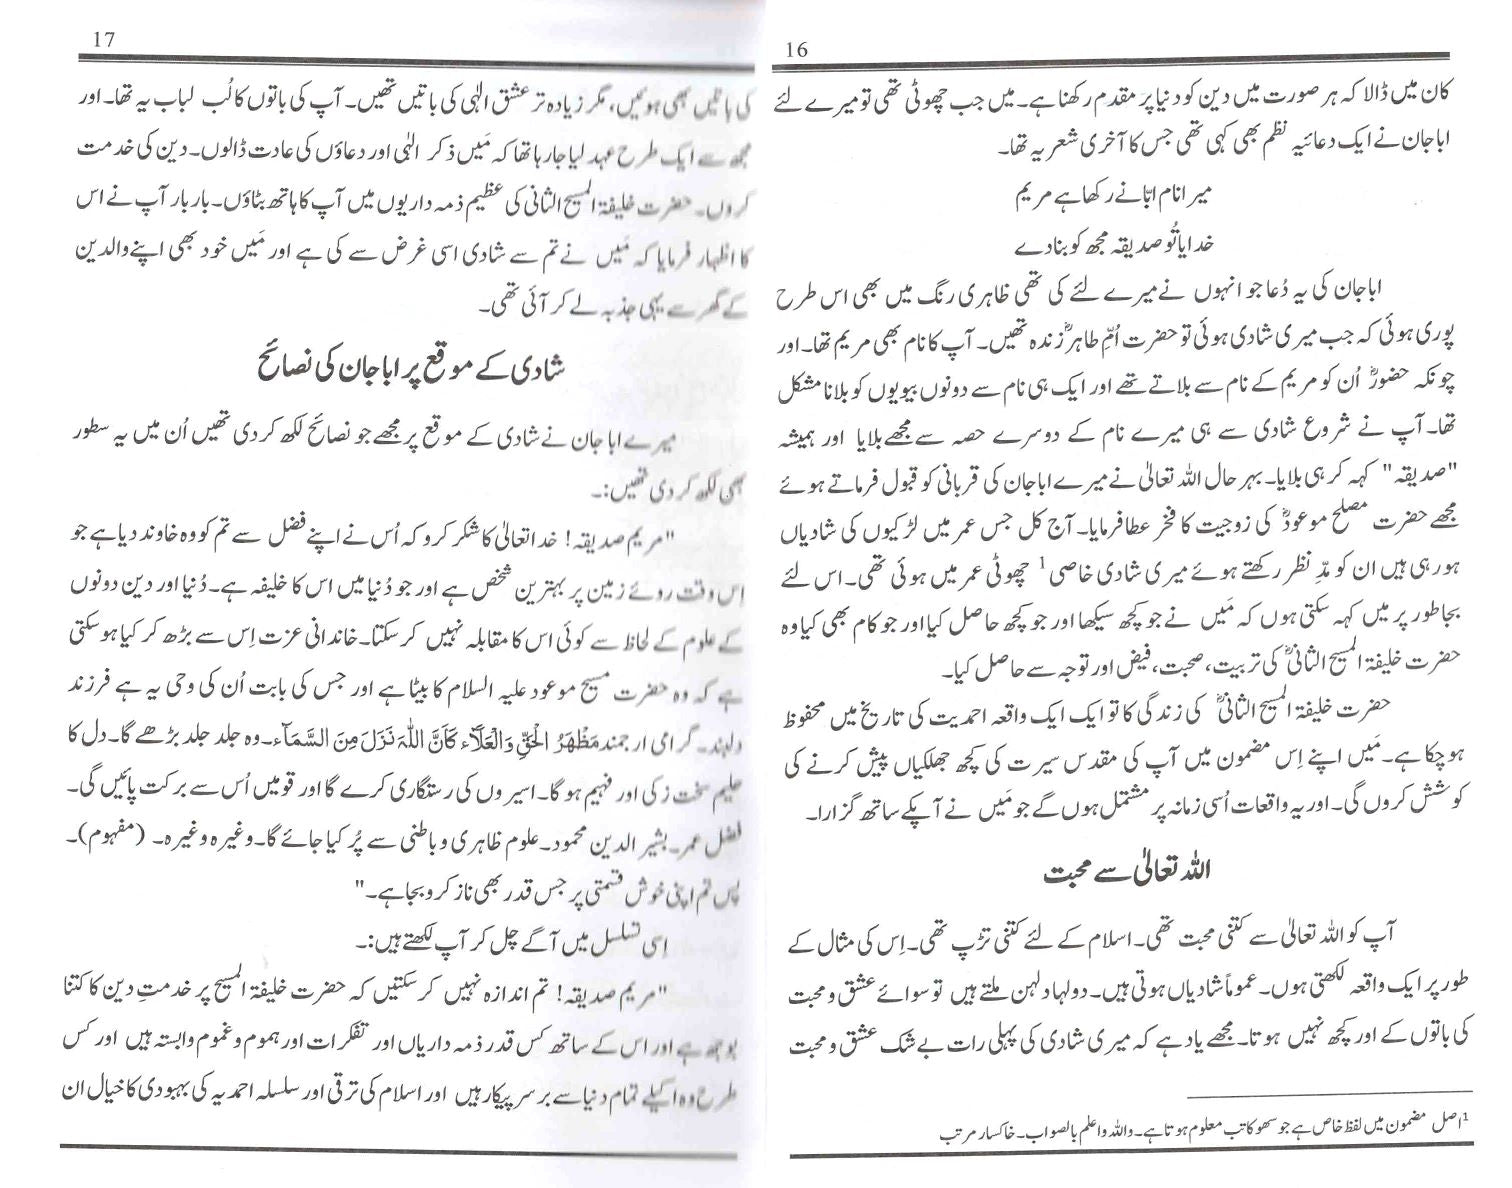 16
کان میں ڈالا کہ ہر صورت میں دین کو دنیا پر مقدم رکھنا ہے۔ میں جب چھوٹی تھی تو میرے لئے
ابا جان نے ایک دعائیہ نظم بھی کہی تھی جس کا آخری شعر یہ تھا۔
میرا نام ابّا نے رکھا ہے مریم
خدایا تُو صدیقہ مجھ کو بنا دے
ابا جان کی یہ دُعا جو انہوں نے میرے لئے کی تھی ظاہری رنگ میں بھی اس طرح
پوری ہوئی کہ جب میری شادی ہوئی تو حضرت اُمّ طاہرؓ زندہ تھیں۔ آپ کا نام بھی مریم تھا۔ اور
چونکہ حضورؓ اُن کو مریم کے نام سے بلاتے تھے اور ایک ہی نام سے دونوں بیویوں کو بلانا مشکل
تھا۔ آپ نے شروع شادی سے ہی میرے نام کے دوسرے حصہ سے مجھے بلایا اور ہمیشہ
"صدیقہ" کہہ کر ہی بلایا۔ بہر حال اللہ تعالیٰ نے میرے ابا جان کی قربانی کو قبول فرماتے ہوئے
مجھے حضرت مصلح موعودؓ کی زوجیت کا فخر عطا فرمایا۔ آج کل جس عمر میں لڑکیوں کی شادیاں
ہو رہی ہیں ان کو مدِّ نظر رکھتے ہوئے میری شادی خاصی¹ چھوٹی عمر میں ہوئی تھی۔ اس لئے
بجا طور پر میں کہہ سکتی ہوں کہ مَیں نے جو کچھ سیکھا اور جو کچھ حاصل کیا اور جو کام بھی کیا وہ
حضرت خلیفۃ المسیح الثانیؓ کی تربیت، صحبت، فیض اور توجہ سے حاصل کیا۔
حضرت خلیفۃ المسیح الثانیؓ کی زندگی کا تو ایک ایک واقعہ احمدیت کی تاریخ میں محفوظ
ہو چکا ہے۔ مَیں اپنے اِس مضمون میں آپ کی مقدس سیرت کی کچھ جھلکیاں پیش کرنے کی
کوشش کروں گی۔ اور یہ واقعات اُسی زمانہ پر مشتمل ہوں گے جو مَیں نے آپکے ساتھ گزارا۔
اللہ تعالیٰ سے محبت
آپ کو اللہ تعالیٰ سے کتنی محبت تھی۔ اسلام کے لئے کتنی تڑپ تھی۔ اِس کی مثال کے
طور پر ایک واقعہ لکھتی ہوں۔ عموماً شادیاں ہوتی ہیں۔ دولہا دلہن ملتے ہیں تو سوائے عشق و محبت
کی باتوں کے اور کچھ نہیں ہوتا۔ مجھے یاد ہے کہ میری شادی کی پہلی رات بے شک عشق و محبت
¹اصل مضمون میں لفظ خاص ہے جو سہو کاتب معلوم ہوتا ہے۔ واللہ و اعلم بالصواب۔ خاکسار مرتب
17
کی باتیں بھی ہوئیں، مگر زیادہ تر عشق الٰہی کی باتیں تھیں۔ آپ کی باتوں کا لُب لباب یہ تھا۔ اور
مجھ سے ایک طرح عہد لیا جا رہا تھا کہ مَیں ذکر الٰہی اور دعاؤں کی عادت ڈالوں۔ دین کی خدمت
کروں۔ حضرت خلیفۃ المسیح الثانی کی عظیم ذمہ داریوں میں آپ کا ہاتھ بٹاؤں۔ بار بار آپ نے اس
کا اظہار فرمایا کہ مَیں نے تم سے شادی اسی غرض سے کی ہے اور مَیں خود بھی اپنے والدین
کے گھر سے یہی جذبہ لے کر آئی تھی۔
شادی کے موقع پر ابا جان کی نصائح
میرے ابا جان نے شادی کے موقع پر مجھے جو نصائح لکھ کر دی تھیں اُن میں یہ سطور
بھی لکھ کر دی تھیں:۔
"مریم صدیقہ! خدا تعالیٰ کا شکر کرو کہ اُس نے اپنے فضل سے تم کو وہ خاوند دیا ہے جو
اِس وقت روئے زمین پر بہترین شخص ہے اور جو دُنیا میں اس کا خلیفہ ہے۔ دُنیا اور دین دونوں
کے علوم کے لحاظ سے کوئی اس کا مقابلہ نہیں کر سکتا۔ خاندانی عزت اِس سے بڑھ کر کیا ہو سکتی
ہے کہ وہ حضرت مسیح موعود علیہ السلام کا بیٹا ہے اور جس کی بابت اُن کی وحی یہ ہے فرزند
دلبند۔ گرامی ارجمند مَظْهَرُ الْحَقِّ وَالْعَلَآء کَأَنَّ اللّٰہَ نَزَلَ مِنَ السَّمَآء۔ وہ جلد جلد بڑھے گا۔ دل کا
حلیم سخت زکی اور فہیم ہو گا۔ اسیروں کی رستگاری کرے گا اور قومیں اُس سے برکت پائیں گی۔
فضل عمر۔ بشیر الدین محمود۔ علوم ظاہری و باطنی سے پُر کیا جائے گا۔ وغیرہ وغیرہ۔ (مفہوم)۔
پس تم اپنی خوش قسمتی پر جس قدر بھی ناز کرو بجا ہے۔"
اسی تسلسل میں آگے چل کر آپ لکھتے ہیں:۔
"مریم صدیقہ! تم اندازہ نہیں کر سکتیں کہ حضرت خلیفۃ المسیح پر خدمتِ دین کا کتنا
بوجھ ہے اور اس کے ساتھ کس قدر ذمہ داریاں اور تفکرات اور ہموم و غموم وابستہ ہیں اور کس
طرح وہ اکیلے تمام دنیا سے برسرِ پیکار ہیں اور اسلام کی ترقی اور سلسلہ احمدیہ کی بہبودی کا خیال ان